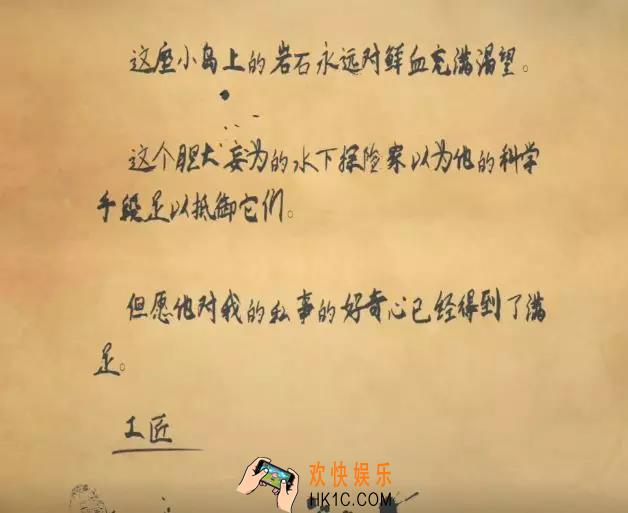 这座小岛上的岩石永远对鲜血充满渴望。
这个胆大妄为的水下探险家以为他的科学
手段足以抵御它们。
但愿他对我的私事的好奇心已经得到了满
足。
工匠
欢快娱乐
HK1C.COM